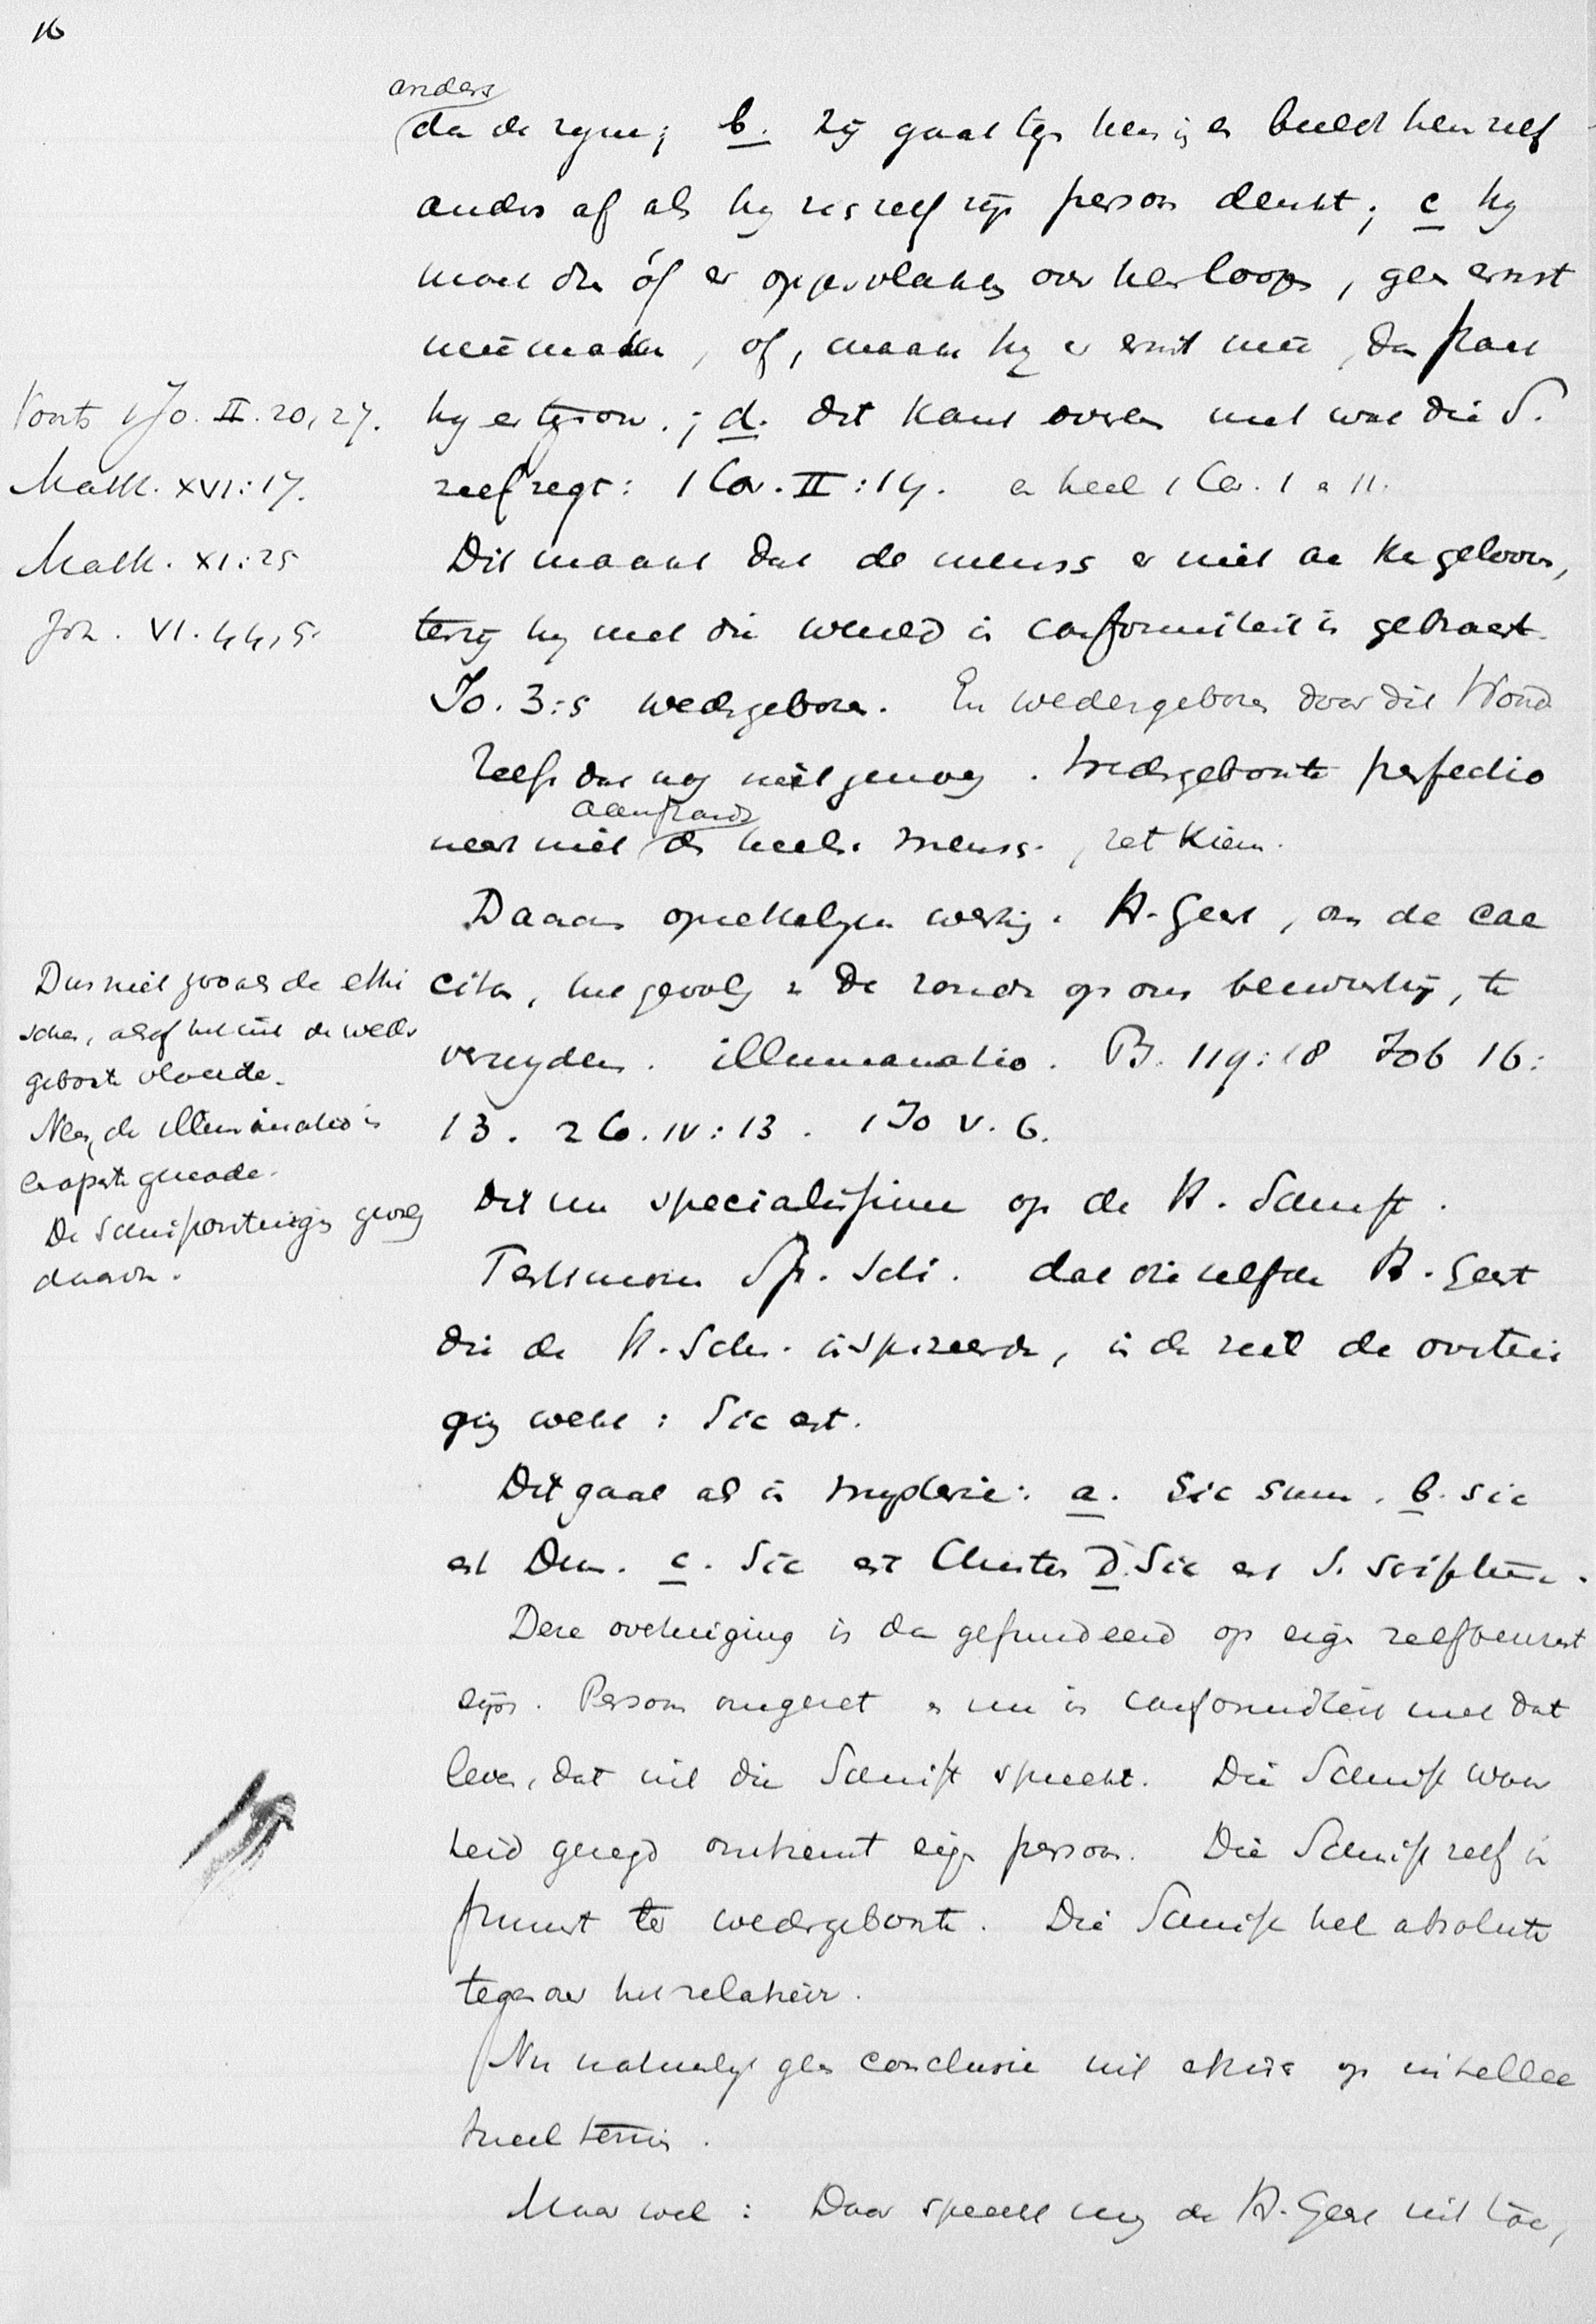 16
anders
dan de zyne; b. Zij gaat tegen hem in en beeldt hem zelf
anders af als hy zig zelf zijn persoon denkt; c hy
moet dus óf er oppervlakkig over heenloopen, geen ernst
meê maken, of, maakt hy er ernst meê, dan staat
Voorts 1 Jo. II. 20, 27.
hy er tegenov.; d. dit komt overeen met wat die S.
Matth. XVI: 17.
zelf zegt: 1 Cor. II: 14. en heel 1 Cor. 1 en 11.
Matth. XI: 25
Dit maakt dat de mensch er niet aan kan gelooven,
Joh. VI. 44, 5.
tenzij hy met die wereld in conformiteit is gebracht.
Jo. 3:5 wedergeboren. En wedergeboren door dit Woord
Zelfs dat nog niet genoeg. Wedergeboorte perfectio
aanstonds
neemt niet de heele mensch, zet kiem.
Daarom opzettelyke werking. H. Geest, om de cae
Dus niet zooals de ethi
citas, het gevolg v. de zonde op ons bewustzijn, te
schen, alsof het uit de weder
geboorte vloeide.
verwyderen. illuminatio. Ps. 119:18 Joh 16:
Neen, de illuminatio is
13. 2 Co. IV: 13. 1 Jo V. 6.
een aparte genade.
De Schriftovertuiging gevolg
daarvan.
Dit nu specialissime op de H. Schrift.
Testimonium Sp. Scti. dat diezelfde H. Geest
die de H. Schr. inspireerde, in de ziel de overtui
ging wekt: Sic est.
Dit gaat als in mysterie: a. Sic sum. b. sic
est Deus. c. Sic est Christus D. Sic est S. scriptura.
Deze overtuiging is dan gefundeerd op eigen zelfbewust
zijn. Persoon omgezet en nu in conformiteit met dat
leven, dat uit die Schrift spreekt. Die Schrift waar
heid gezegd omtrent eigen persoon. Die Schrift zelf in
punt der wedergeboorte. Die Schrift het absolute
tegenover het relatieve.
Nu natuurlyk geen conclusie uit ethica op intellec
tueel terrein.
Maar wel: Daar spreekt my de H. Geest uit toe,